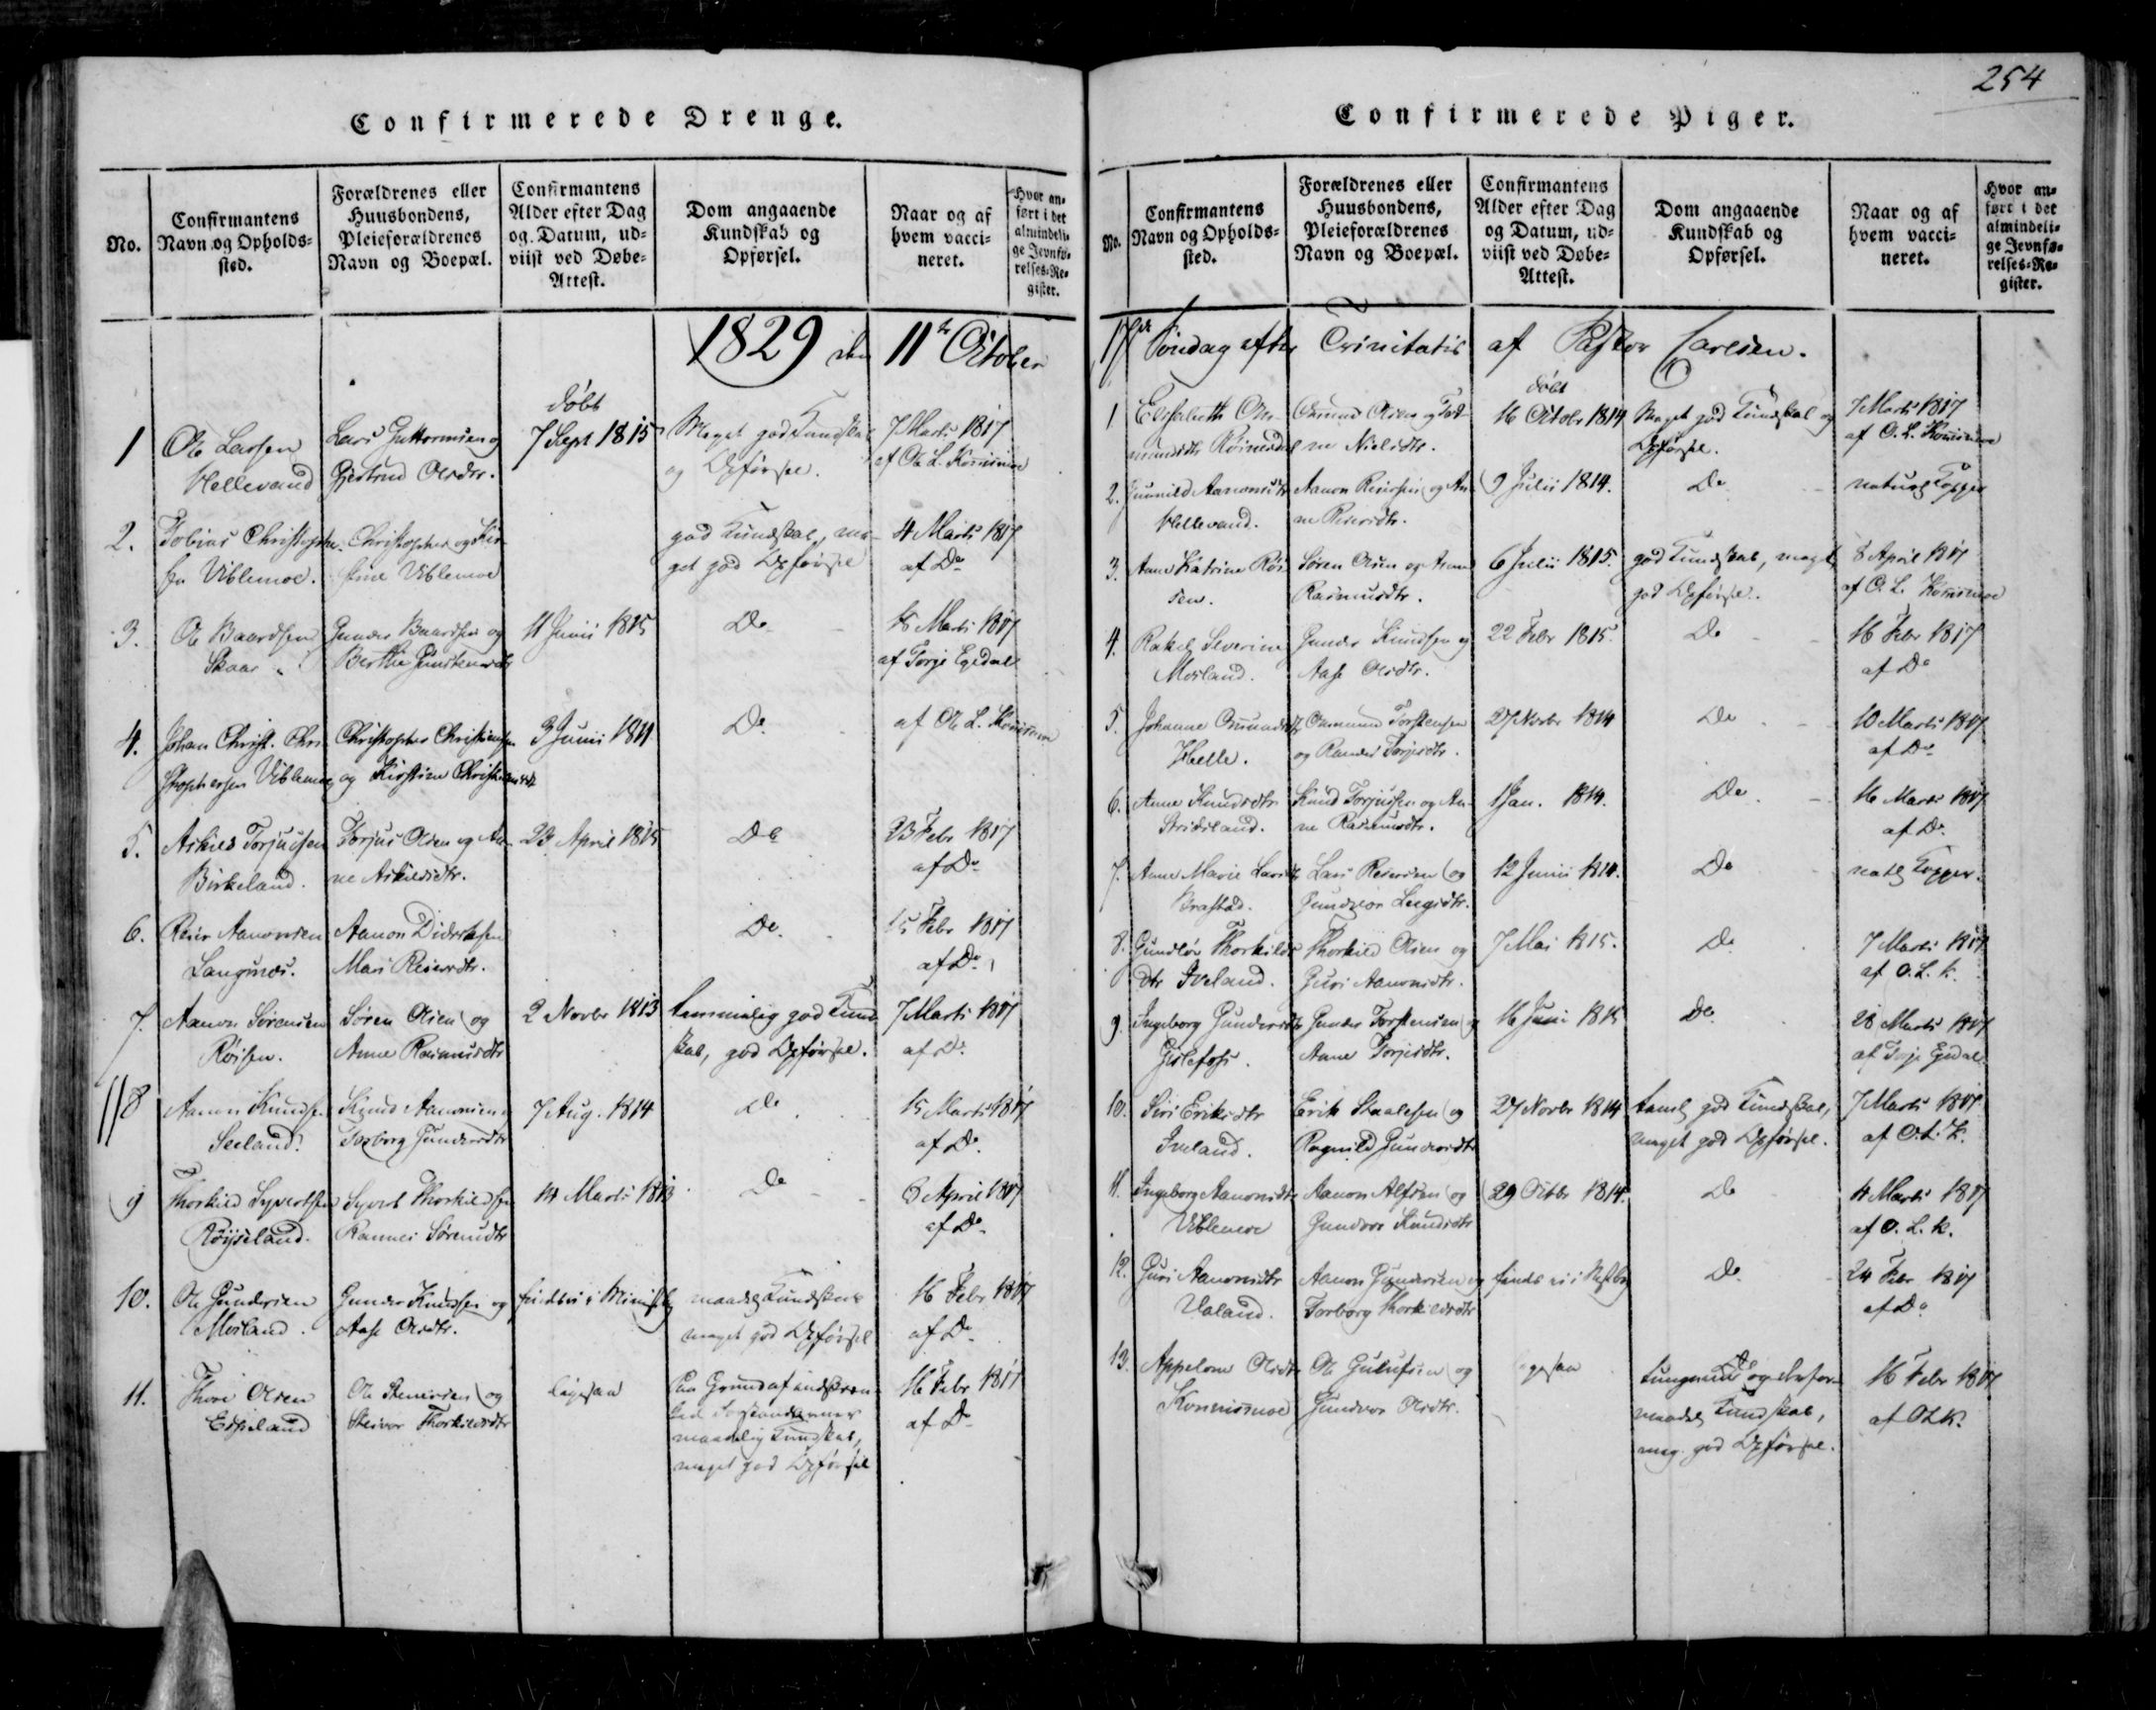 254
Confirmerede Drenge.
No.
Confirmantens
Navn og Opholds=
sted.
Forældrenes eller
Huusbondens,
Pleieforældrenes
Navn og Boepæl.
Confirmantens
Alder efter Dag
og Datum, ud=
viist ved Døbe=
Attest.
Dom angaaende
Kundskab og
Opførsel.
Naar og af
hvem vacci=
neret.
Hvor an=
ført i det
almindeli=
ge Jevnfø=
relses=Re=
gister.
1829 den 11te October
1
Ole Larsen
Hellevand
Lars Guttormsen og
Gjertrud Olsdtr.
døbt
7 Sept 1815
Meget god Kundskab
og Opførsel.
7 Marts 1817
af Ole L. Konnismoe
2.
Tobias Christophe-
Viblemoe.
Christopher og Kir-
stine Viblemoe
god Kundskab, me-
get god Opførsel
4 Marts 1817
af Do
3.
Ole Baardsen
Skaar
Gunder Baardsen og
Berthe
11 Junii 1815
Do
Marts 1817
af Torje Egedal
4.
Johan Christ. Chri-
stophersen Viblemoe
Christopher Christensen
og Kirstine
3 Junii 1811
Do
af Ole L. Konnismoe
5.
Askild Torjusen
Birkeland.
Torjus Olsen og An-
ne Askildsdtr.
23 April 1815
Do
23 Febr 1817
af Do
6.
Reier Aanonsen
Langenæs.
Aanon Didriksen
Mari Reiersdtr.
Do
15 Febr 1817
af Do
7.
Aanon Sørensen
Røisen.
Søren Olsen og
Anne Rasmusdtr
2 Novbr 1813
temmelig god Kund-
skab, god Opførsel.
7 Marts 1817
af Do
8
Aanon Knudsen
Seeland.
Knud Aanonsen
Torborg Gundersdtr
7 Aug. 1814
Do
15 Marts 1817
af Do
9
Thorkild Syvertsen
Røyseland.
Syvert Thorkildsen
Rannei Sørensdtr
14 Marts 1813
Do
8 April 1817
af Do
10.
Ole Gundersen
Mosland.
Gunder Knudsen og
Aase Olsdtr.
findes ei i
maadelig Kundskab
meget god Opførsel
16 Febr 1817
af Do
11.
Thore Olsen
Edsland
Ole Stenersen og
Steivor Thorkildsdtr
ligesaa
Paa Grund af indskræn-
ket
maadelig Kundskab,
meget god Opførsel
16 Febr 1817
af Do
Confirmerede Piger.
No.
Confirmantens
Navn og Opholds=
sted.
Forældrenes eller
Huusbondens,
Pleieforældrenes
Navn og Boepæl.
Confirmantens
Alder efter Dag
og Datum, ud=
viist ved Døbe=
Attest.
Dom angaaende
Kundskab og
Opførsel.
Naar og af
hvem vacci=
neret.
Hvor an=
ført i det
almindeli=
ge Jevnfø=
relses=Re=
gister.
17de Søndag efter Trinitatis af Pastor Carlsen.
1
Elisabeth Os-
mundsdtr
Osmund Olsen og
Nielsdtr.
døbt
16 Octobr 1814
Meget god Kundskab og
Opførsel.
7 Marts 1817
af O. L. Konnismoe
2.
Gunild Aanonsdtr
Hellevand.
Aanon Reiersen og An-
ne Reiersdtr.
9 Julii 1814.
Do
naturl Kopper
3.
Anne Katrine Røi-
sen.
Søren Olsen og Anne
Rasmusdtr.
6 Julii 1815.
god Kundskab, meget
god Opførsel.
8 April 1817
af O. L. Konnismoe
4.
Rakel Severine
Mosland.
Gunder Knudsen og
Aase Olsdtr.
22 Febr 1815.
Do
16 Febr 1817
af Do
5.
Johanne Osmundsdtr
Helle.
Osmund Torstensen
og Randi Torjesdtr.
27 Novbr 1814
Do
10 Marts 1817
af Do
6.
Anne Knudsdtr
Stridsland.
Knud Torjussen og An-
ne Rasmusdtr.
1 Jan. 1814.
Do
16 Marts 1817
af Do
7.
Anne Marie Larsdtr
Brastad.
Lars Reiersen og
Gundlor
12 Junii 1814.
Do
natl Kopper.
8.
Gundlor Thorkilds-
dtr Iveland.
Thorkild Olsen og
Guri Aanonsdtr.
7 Mai 1815.
Do
7 Marts 1817
af O. L. K.
9.
Ingeborg Gundersdtr
Gislefoss.
Gunder Torstensen og
Anne Torjesdtr.
16 Juni 1815
Do
28 Marts 1817
af Torje Egedal
10.
Siri Eriksdtr
Iveland.
Erik Staalesen og
Ragnild Gundersdtr
27 Novbr 1814
taml god Kundskab,
meget god Opførsel.
7 Marts 1817
af O. L. K.
11.
Ingeborg Aanonsdtr
Viblemoe
Aanon Alfsen og
Gundvor Knudsdtr
29 Octbr 1814.
Do
4 Marts 1817
af O. L. K.
12.
Guri Aanonsdtr
Valand.
Aanon Gundersen og
Torborg Thorkildsdtr
findes ei i
Do
24 Febr 1817
af Do
13.
Appelone Olsdtr
Konnismoe
Ole Gulufsen og
Gundvor Olsdtr.
ligesaa
tungnem og derfor
maadel Kundskab,
meg. god Opførsel.
16 Febr 1817
af OLK.